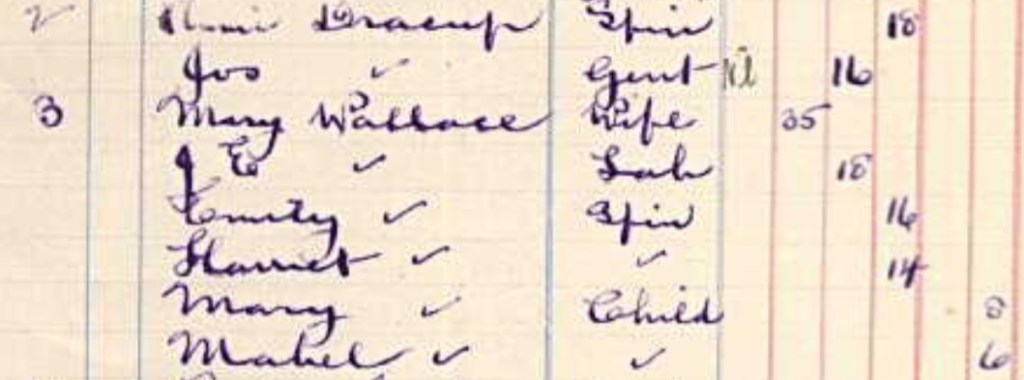 2 Dracup Spin 18
Jos ✓ Gent 16
3 Mary Wallace Wife 35
J E ✓ Lab 18
Emily ✓ Spin 16
Harriet ✓ ✓ 14
Mary ✓ Child 8
Mabel ✓ ✓ 6